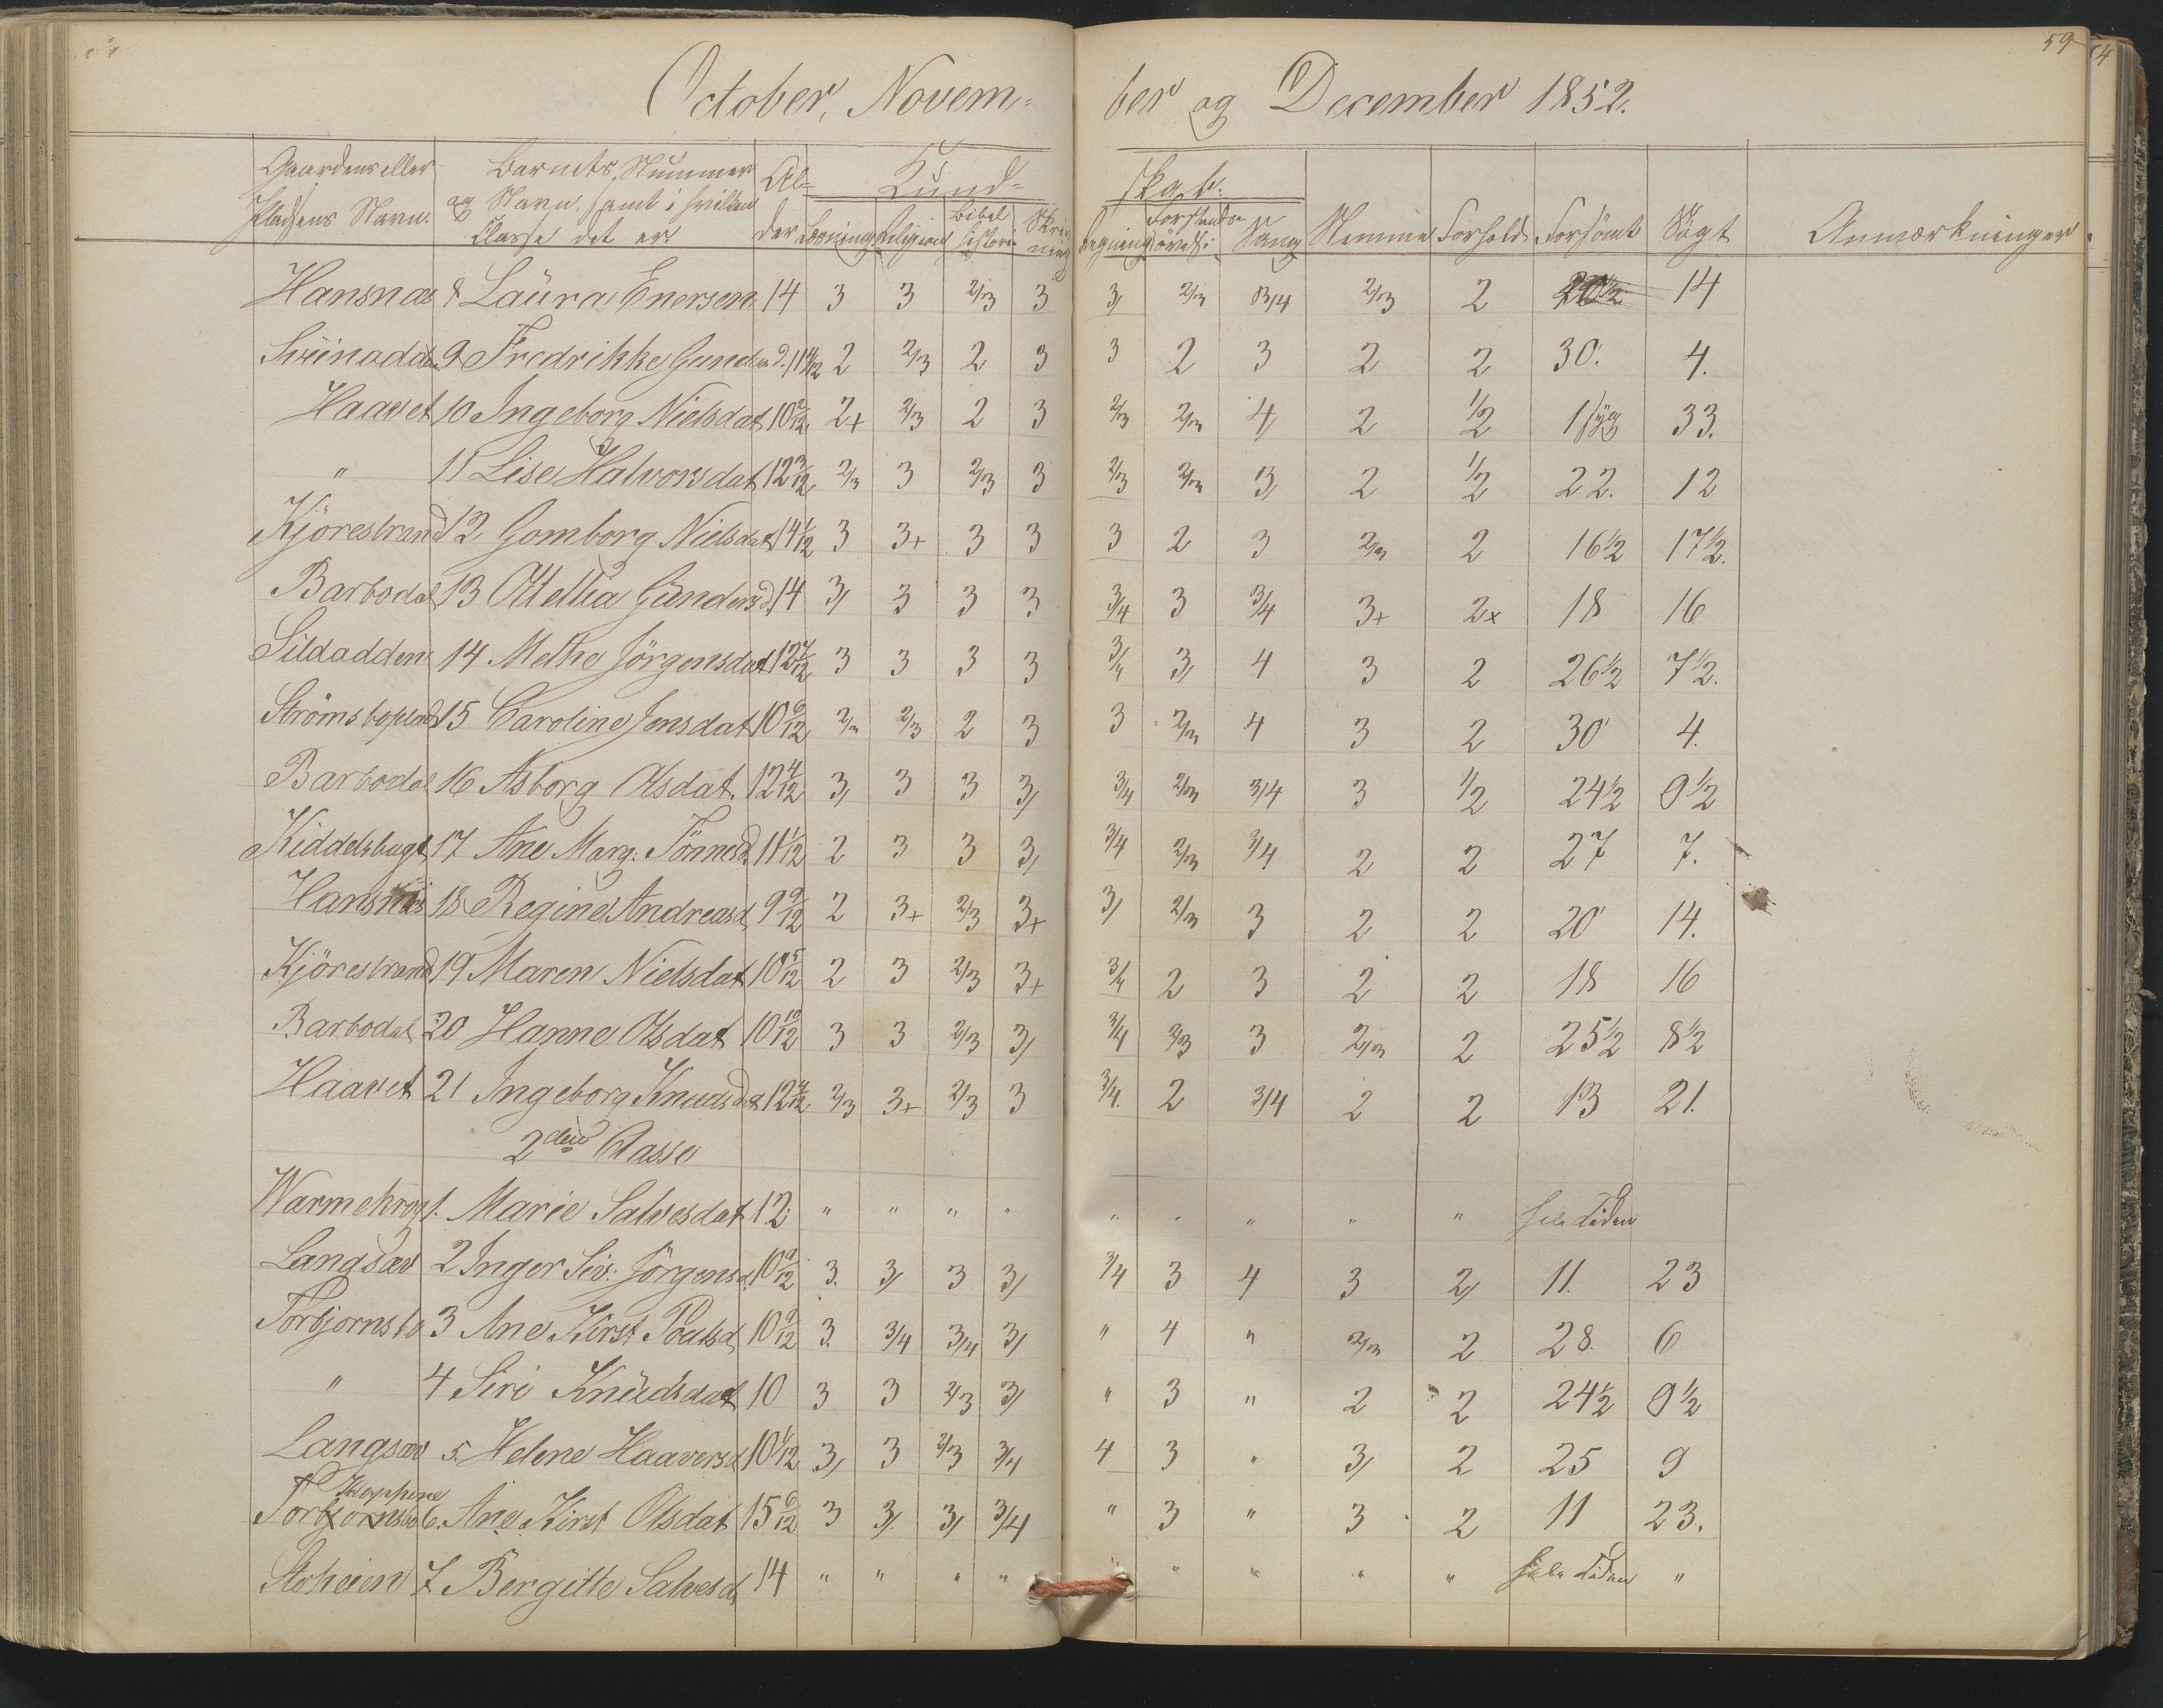 59
October, Novem- ber og December 1852.
Gaardens eller Pladsens Navn. Barnets Nummer og Navn samt i hvilken Classe det er Alder Kund- skab. Nemme Forhold Forsömt Sögt Anmærkninger
Læsning Religion Bibel historie Skrivning Regning Forstands övelse Sang
Hansnæs 8 Laura Enersen 14 3 3 2/3 3 3/ 2/3 3/4 2/3 2 20 1/2 14
9 Fredrikke Gunders d. 11 4/12 2 2/3 2 3 3 2 3 2 2 30. 4.
Haavet 10 Ingeborg Nielsdat 10 2/12 2+ 2/3 2 3 2/3 2/3 4/ 2 1/2 1 syg 33.
" 11 Lise Halvorsdat 12 3/12 2/3 3 2/3 3 2/3 2/3 3/ 2 1/2 22. 12
Kjörestrand 12 Gomborg Nielsdat 14 1/12 3 3+ 3 3 3 2 3 2/3 2 16 1/2 17 1/2.
Barbodal 13 Ottellia Gündersd. 14 3/ 3 3 3 3/4 3 3/4 3+ 2x 18 16
Sildodden 14 Methe Jörgensdat 12 7/12 3 3 3 3 3/4 3/ 4 3 2 26 1/2 7 1/2.
Strömsboplads 15 Caroline Jensdat 10 9/12 2/3 2/3 2 3 3 2/3 4 3 2 30 4.
Barbodal 16 Asborg Olsdat. 12 4/12 3/ 3 3 3/ 3/4 2/3 3/4 3 1/2 24 1/2 9 1/2
Kiddelsbugt 17 Ane Marg: Tönnesd. 11 1/12 2 3 3 3/ 3/4 2/3 3/4 2 2 27 7.
Hansnæs 18 Regine Andreasd 9 9/12 2 3+ 2/3 3+ 3/ 2/3 3 2 2 20 14.
Kjörestrand 19 Maren Nielsdat 10 5/12 2 3 2/3 3+ 3/4 2 3 2 2 18 16
Barbodal 20 Hanne Olsdat 10 10/12 3 3 2/3 3/ 3/4 2/3 3 2/3 2 25 1/2 8 1/2
Haavet 21 Ingeborg Knudsdat 12 4/12 2/3 3+ 2/3 3 3/4. 2 3/4 2 2 13 21.
2den Classe
Warmekrog 1. Marie Salvesdat 12 " " " " " " " " " hele Tiden
Langsæv 2 Inger Siv: Jörgensd. 10 9/12 3. 3/ 3 3/ 3/4 3 4 3 2/ 11. 23
Torbjornsbo 3 Ane Kirst Poulsd 10 9/12 3. 3/4 3/4 3/ " 4 " 2/3 2 28. 6
" 4 Siri Knüdsdat 10 3 3 2/3 3/ " 3 " 2 2 24 1/2 9 1/2
Langsæv 5. Helene Haaversd 10 1/12 3/ 3 2/3 3/4 4 3 " 3/ 2 25 9
Torbjornsbo 6. Ane Kirst Olsdat 15 6/12 3 3/ 3/ 3/4 " 3 " 3 2 11 23.
Stoheien 7. Bergitte Salvesd. 14 " " " " " " " " hele Tiden "